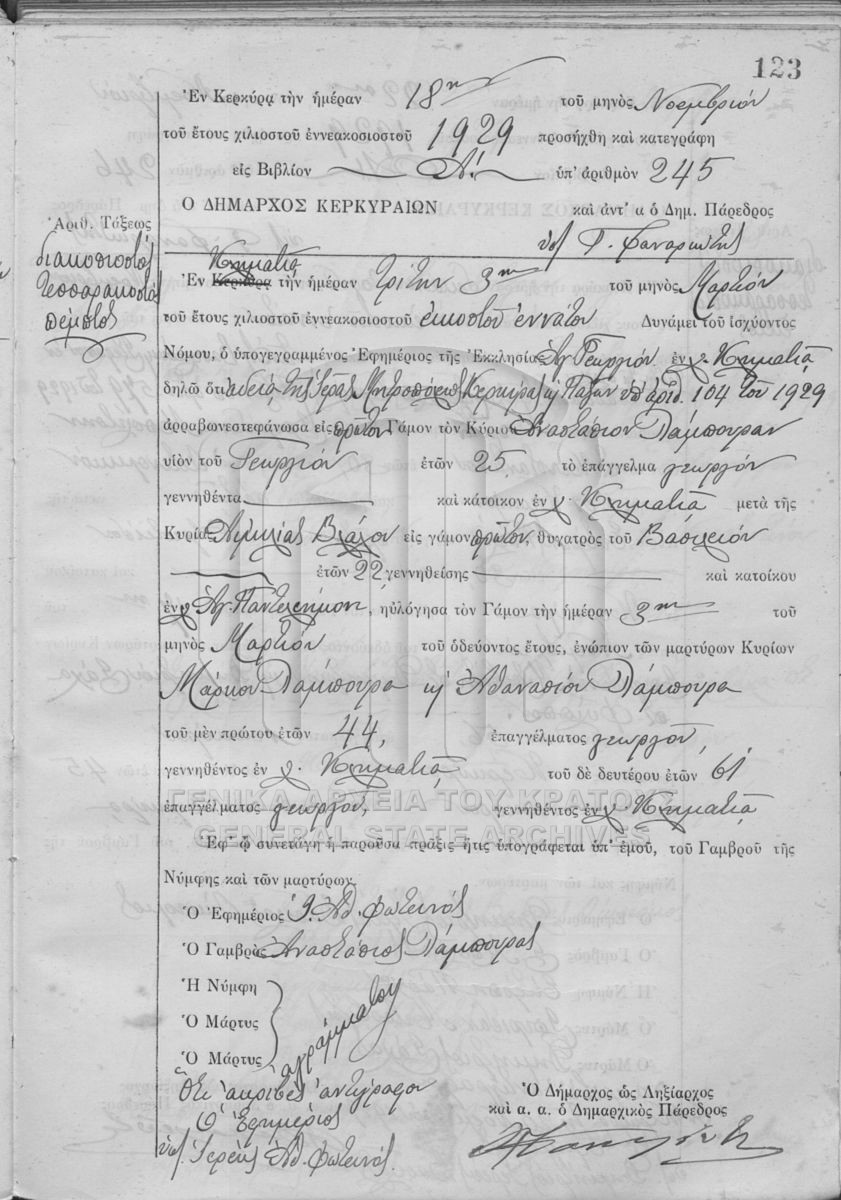 123
Ἐν Κερκύρᾳ τὴν ἡμέραν 18ην τοῦ μηνὸς Νοεμβρίου
τοῦ ἔτους χιλιοστοῦ ἐννεακοσιοστοῦ 1929 προσήχθη καὶ κατεγράφη
εἰς Βιβλίον Α. ὑπ' ἀριθμὸν 245
Ο ΔΗΜΑΡΧΟΣ ΚΕΡΚΥΡΑΙΩΝ καὶ ἀντ' α ὁ Δημ. Πάρεδρος
Ἀριθ. Τάξεως
διακοσιοστὸς
τεσσαρακοστὸς
πέμπτος
Γ. Φαναριώτης
Κληματιᾷ
Ἐν Κερκύρᾳ τὴν ἡμέραν τρίτην 3ην τοῦ μηνὸς Μαρτίου
τοῦ ἔτους χιλιοστοῦ ἐννεακοσιοστοῦ εἰκοστοῦ ἐννάτου Δυνάμει τοῦ ἰσχύοντος
Νόμου, ὁ ὑπογεγραμμένος Ἐφημέριος τῆς Ἐκκλησίας Ἁγ. Γεωργίου ἐν χ. Κληματιᾷ
δηλῶ ὅτι ἀδείᾳ τῆς Ἱερᾶς Μητροπόλεως Κερκύρας κ Παξῶν ὑπ' ἀριθ. 104 τοῦ 1929
ἀρραβωνεστεφάνωσα εἰς πρῶτον Γάμον τὸν Κύριον Ἀναστάσιον Λάμπουραν
υἱὸν τοῦ Γεωργίου ἐτῶν 25 τὸ ἐπάγγελμα γεωργὸν
γεννηθέντα καὶ κάτοικον ἐν χ. Κληματιᾷ μετὰ τῆς
Κυρίας Αἰμιλίας Βλάχου εἰς γάμον πρῶτον, θυγατρὸς τοῦ Βασιλείου
ἐτῶν 22 γεννηθείσης καὶ κατοίκου
ἐν χ Ἁγ. Παντελεήμονι, ηὐλόγησα τὸν Γάμον τὴν ἡμέραν 3ην τοῦ
μηνὸς Μαρτίου τοῦ ὁδεύοντος ἔτους, ἐνώπιον τῶν μαρτύρων Κυρίων
Μάρκου Λάμπουρα κ Ἀθανασίου Λάμπουρα
τοῦ μὲν πρώτου ἐτῶν 44, ἐπαγγέλματος γεωργοῦ,
γεννηθέντος ἐν χ. Κληματιᾷ τοῦ δὲ δευτέρου ἐτῶν 61
ἐπαγγέλματος γεωργοῦ, γεννηθέντος ἐν χ. Κληματιᾷ
ΓΕΝΙΚΑ ΑΡΧΕΙΑ ΤΟΥ ΚΡΑΤΟΥΣ
GENERAL STATE ARCHIVES
Ἐφ' ᾧ συνετάγη ἡ παροῦσα πρᾶξις ἥτις ὑπογράφεται ὑπ' ἐμοῦ, τοῦ Γαμβροῦ τῆς
Νύμφης καὶ τῶν μαρτύρων.
Ὁ Ἐφημέριος Ἱ. Ἀθ. Φωτεινός
Ὁ Γαμβρὸς Ἀναστάσιος Λάμπουρας
Ἡ Νύμφη
Ὁ Μάρτυς
Ὁ Μάρτυς
ἀγράμματοι
Ὅτι ἀκριβὲς ἀντίγραφον
Ὁ Ἐφημέριος
Ἱερεὺς Ἀθ. Φωτεινός.
Ὁ Δήμαρχος ὡς Ληξίαρχος
καὶ α. α. ὁ Δημαρχικὸς Πάρεδρος